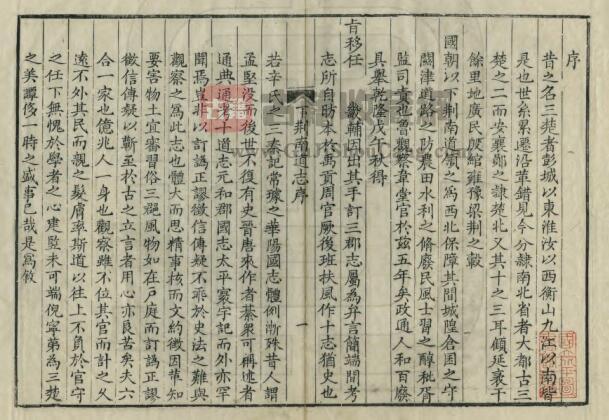 序
昔之名三楚者彭城以東淮汝以西衡山九江以南皆
是也世系累遷沿革錯見今分隸南北省者大都古三
楚之二而安襄鄖之隸楚北又其十之三耳顧延袤千
餘里地廣民縱綰雍豫梁荆之轂
國朝以下荆南道領之為西北保障其間城隍倉囷之守
關津道路之防農田水利之脩廢民風士習之醇秕胥
監司責也當觀察韋堂官於茲五年矣政通人和百廢
具舉乾隆戊子秋得
旨移任
畿輔因出其手訂三郡志屬為弁言簡端聞考
志所自昉本於禹貢周官厥後班扶風作十志猶史也
下荆南道志序
一
若辛氏之三秦記常璩之華陽國志體例漸殊昔人謂
孟堅没而後世不復有史晉唐來作者綦衆可稱述者
通典通考十道志元和郡國志太平寰宇記而外亦罕
聞焉豈非以訂譌正謬徵信傳疑不乖於史法之難與
觀察之為此志也體大而思精事核而文約徵因革知
要害物土宜審習俗三郡風物如在户庭而訂譌正謬
徵信傳疑以蘄至於古之立言者用心亦良苦矣夫六
合一家也億兆人一身也觀察雖不位其官而計之久
遠不外其民而親之髮膚率斯道以往上不負於官守
之任下無愧於學者之心建監未可端倪寧第為三楚
之美譚侈一時之盛事已哉是為敘